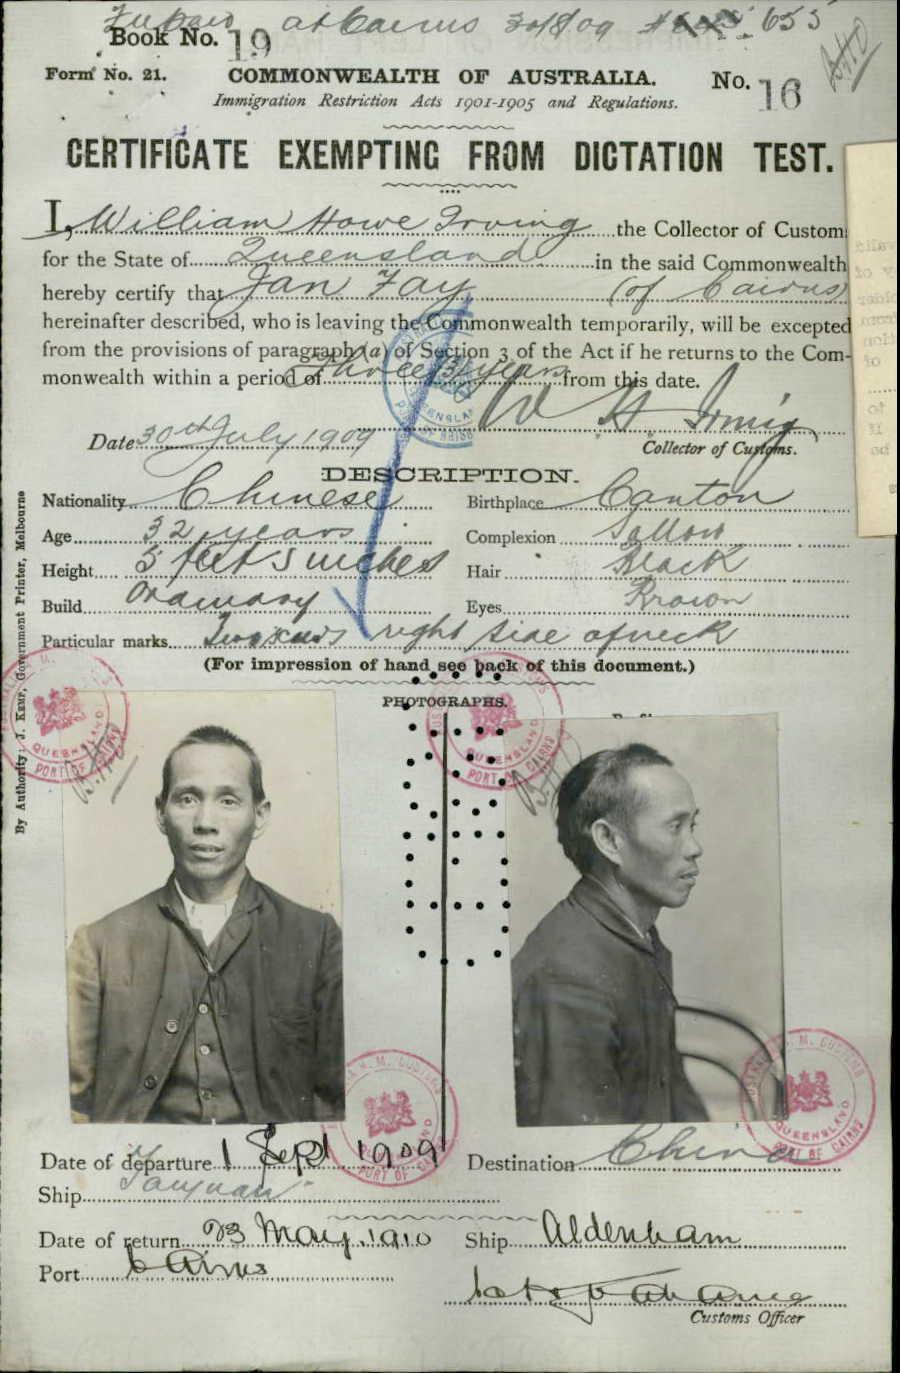 at Cairns 30/8/09 655
Book No. 19
Form No. 21. COMMONWEALTH OF AUSTRALIA. No. 16
Immigration Restriction Acts 1901-1905 and Regulations.
CERTIFICATE EXEMPTING FROM DICTATION TEST.
I, William Howe Irving the Collector of Customs
for the State of Queensland in the said Commonwealth
hereby certify that Jan Fay (of Cairns)
hereinafter described, who is leaving the Commonwealth temporarily, will be excepted
from the provisions of paragraph (a) of Section 3 of the Act if he returns to the Com-
monwealth within a period of Three (3) years from this date.
W H Irving
Date 30th July 1909 Collector of Customs.
DESCRIPTION.
Nationality Chinese Birthplace Canton
Age 32 years Complexion Sallow
Height 5 feet 5 inches Hair Black
Build Ordinary Eyes Brown
Particular marks right side of neck
(For impression of hand see back of this document.)
PHOTOGRAPHS.
QUEENSLAND
PORT OF CAIRNS
QUEENSLAND
PORT OF CAIRNS
H. M. CUSTOMS
PORT OF CAIRNS
H. M. CUSTOMS
QUEENSLAND
PORT OF CAIRNS
Date of departure 1 Sept 1909 Destination China
Ship Taiyuan
Date of return 23 May 1910 Ship Aldenham
Port Cairns
Customs Officer
By Authority: J. Kemp, Government Printer, Melbourne